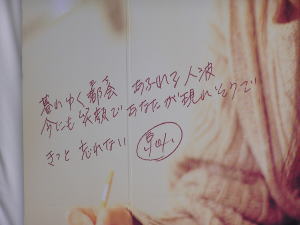 暮れゆく都会 あふれる人波
今にも笑顔であなたが現れそうで
きっと忘れない